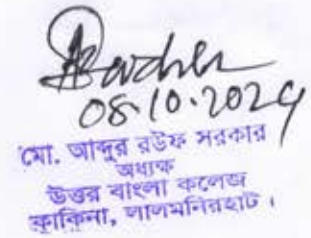 08.10.2024
মো. আব্দুর রউফ সরকার
অধ্যক্ষ
উত্তর বাংলা কলেজ
কাকিনা, লালমনিরহাট।